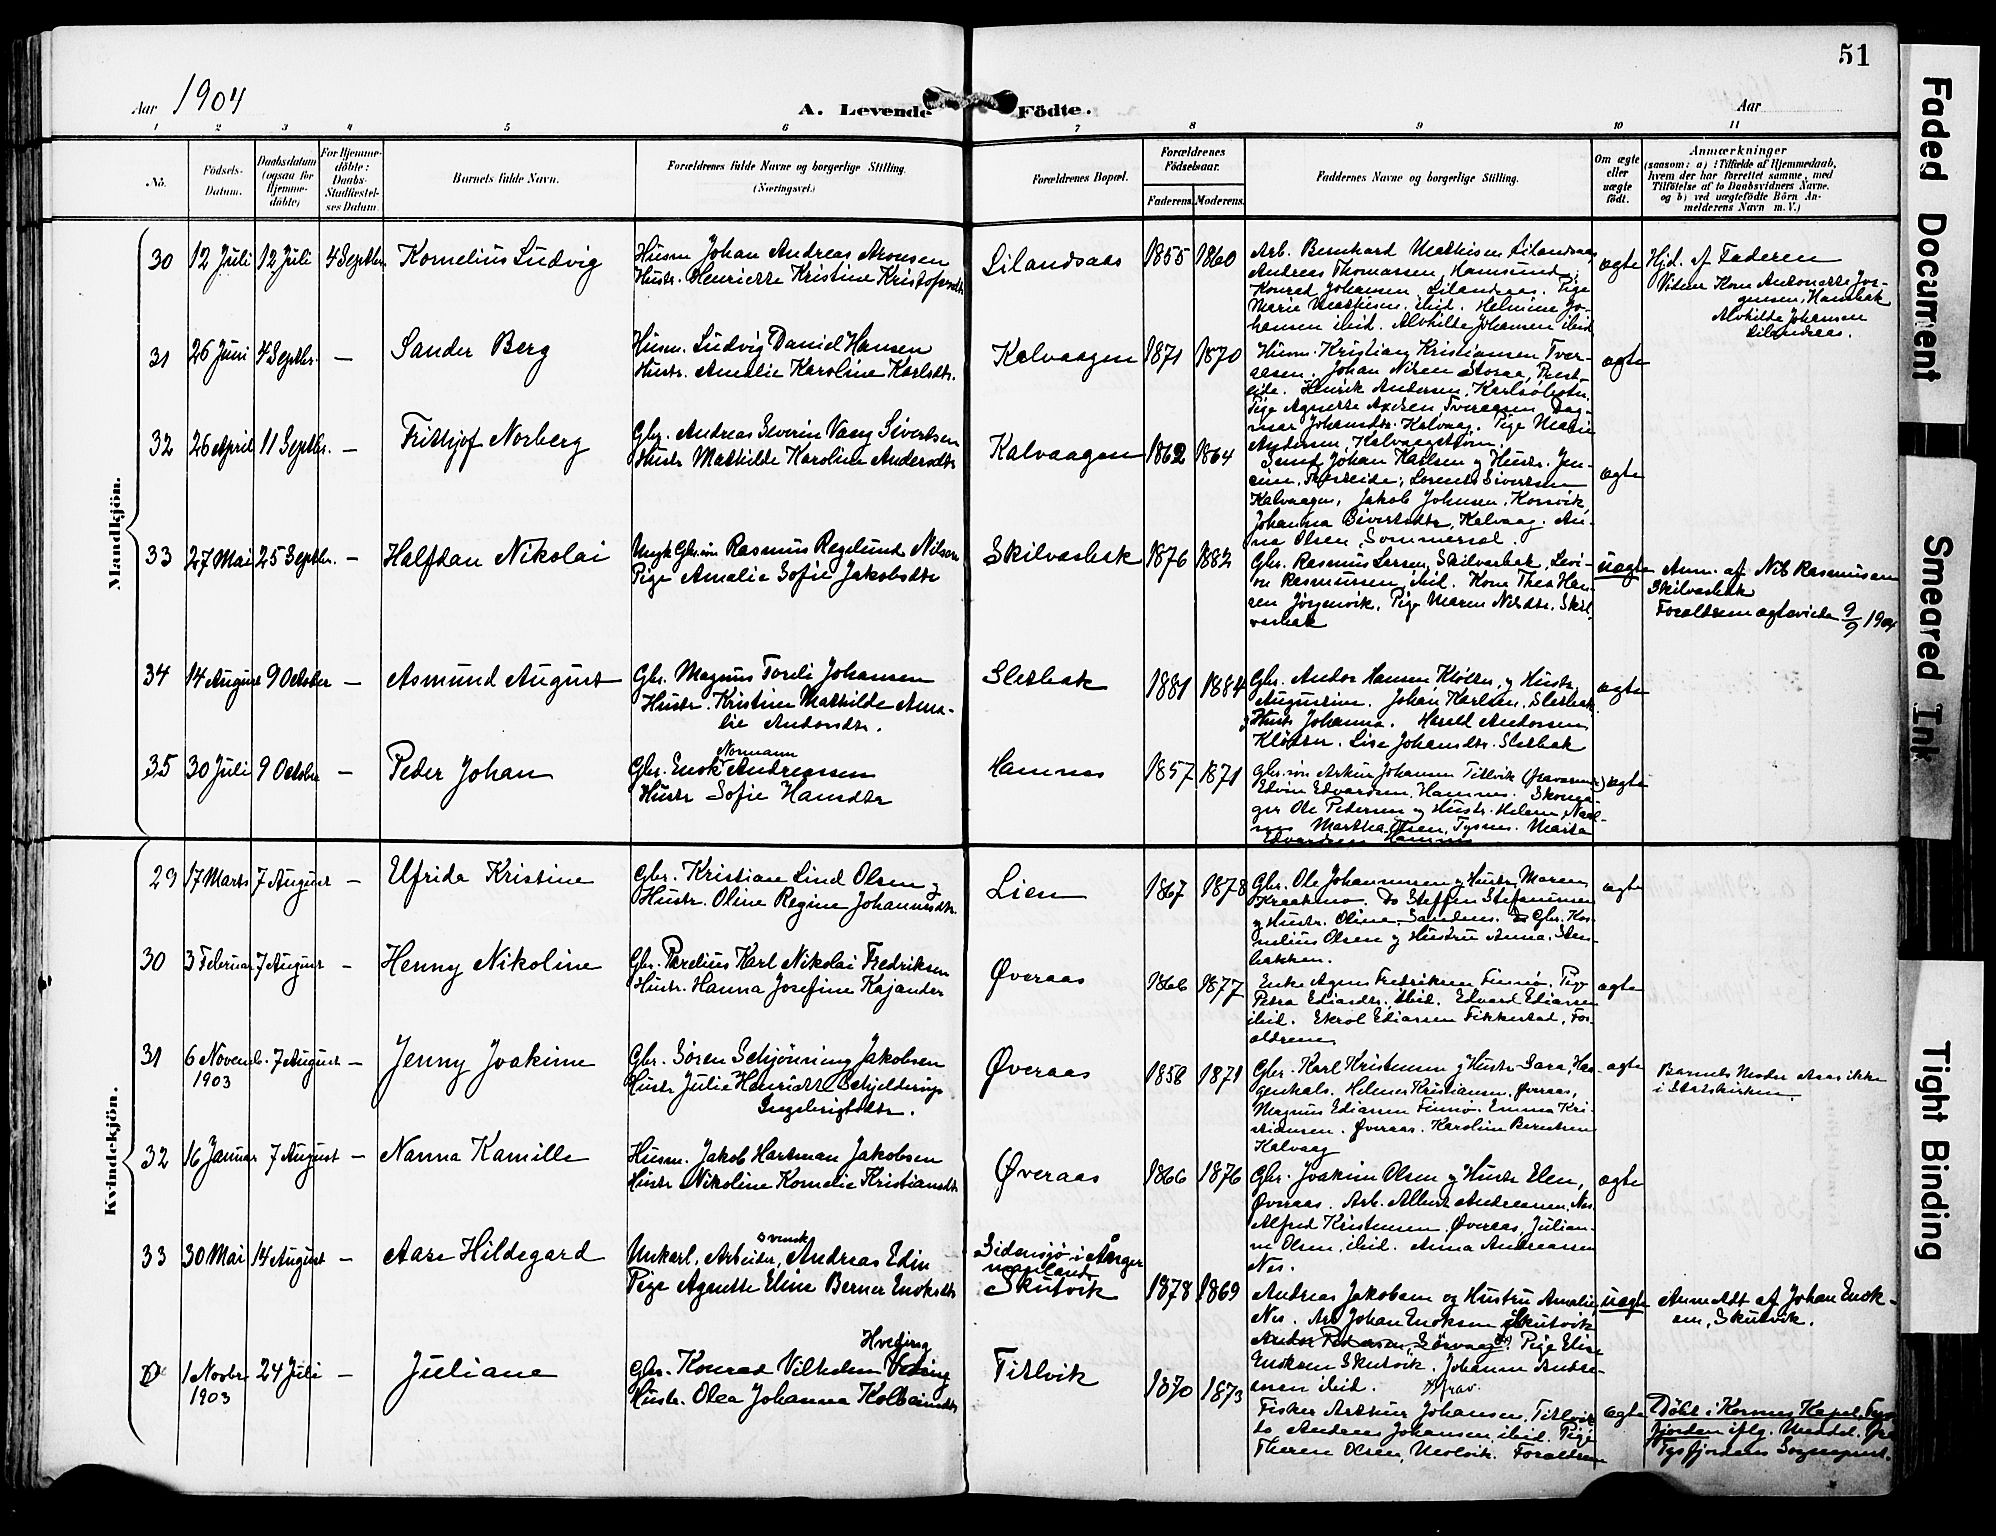 51
Aar 1904
A. Levende Födte.
Aar
1 2 3 4 5 6 7 8 9 10 11
No.
Födsels-
Datum.
Daabsdatum
(ogsaa for
Hjemme-
döbte)
For Hjemme-
döbte:
Daabs-
Stadfæstel-
ses Datum.
Barnets fulde Navn.
Forældrenes fulde Navne og borgerlige Stilling.
(Næringsvei.)
Forældrenes Bopæl.
Forældrenes
Födselsaar.
Faderens. Moderens.
Faddernes Navne og borgerlige Stilling.
Om ægte
eller
uægte
födt.
Anmærkninger
(saasom: a) i Tilfælde af Hjemmedaab,
hvem der har forrettet samme, med
Tilföielse af to Daabsvidners Navne,
og b) ved uægtefödte Börn An-
melderens Navn m. V.)
Mandkjön.
30 12 Juli 12 Juli 4 Septbr. Kornelius Ludvig
Husm Johan Andreas Aronsen
Hustr. Henriette Kristine Kristofersdtr
Lilandsaas 1855 1860
Arb. Bernhard Mathisen Lilandsaas
Andreas Thomassen, Hamsund;
Konrad Johansen Lilandsaas. Pige
Marie Mathisen ibid. Helmine Jo-
hansen ibid. Alvhilde Johansen ibid
ægte
Hjd. af Faderen
Vidner Kone Antonette Jør-
gensen, Hamsbak
Alvhilde Johansen
Lilandsaas.
31 26 Juni 4 Septbr. — Sander Berg
Husm. Ludvig Daniel Hansen
Hustr. Amalie Karoline Karlsdtr.
Kalvaagen 1871 1870
Husm. Kristian Kristiansen Tver-
aasen. Johan Nilsen Storaa, Prest-
eide. Henrik Andersen, Karlsøbotn
Pige Agnette Axelsen, Tveraasen, Dag-
mar Johansdtr. Kalvaag. Pige Marie
Andersen, Kalvaagstrøm.
ægte
32 26 April 11 Septbr. — Frithjof Norberg
Gbr. Andreas Severin Vaag Sivertsen
Hustr Mathilde Karoline Andersdtr
Kalvaagen 1862 1864
Johan Karlsen og Hustr. Jen-
sine, Presteide; Lorents Sivertsen
Kalvaagen, Jakob Johnsen, Korsvik
Johanna Sivertsdtr, Kalvaag. An-
na Olsen, Sommersel.
ægte
33 27 Mai 25 Septbr. — Halfdan Nikolai
Ungk Gbr.søn Rasmus Regelund Nilsen
Pige Amalie Sofie Jakobsdtr
Skilvasbak 1876 1882
Gbr. Rasmus Larsen, Skilvasbak, Levi-
on Rasmussen, ibid. Kone Thea Han-
sen Jørgenvik. Pige Maren Nilsdtr. Skil-
vasbak
uægte
Anm. af Nils Rasmussen
Skilvasbak
Forældrene ægteviede 9/9 1904
34 14 August 9 October — Asmund August
Gbr. Magnus Torele Johansen
Hustr. Kristine Mathilde Ama-
lie Andorsdtr.
Sletbak 1881 1884
Gbr. Andor Hansen Kløtten, og Hustr.
Augustine. Johan Karlsen, Sletbak
og Hustr Johanna. Harald Andorsen
Kløtten. Lise Johansdtr. Sletbak
ægte
35 30 Juli 9 Octobr — Peder Johan
Normann
Gbr. Enok Andreassen
Hustr Sofie Hansdtr
Hamnes 1857 1871
Gbr.søn Artur Johansen Tillvik
Edvin Edvardsen, Hamnes.
ger Ole Pedersen og Hustr. Helene
Martha Olsen, Tysnes. Maria
Edvardsen Hamnes
ægte
Kvindekjön.
29 17 Marts 7 August — Elfrida Kristine
Gbr. Kristian Lind Olsen og
Hustr. Oline Regine Johannesdtr.
Lien 1867 1878
Gbr. Ole Johannessen og Hustr. Maren
Kraakmo. Do Steffen Steffensen
og Hustr. Oline, Sandnes. Do Gbr. Kor-
nelius Olsen og Hustru Anna. Sten-
bakken.
ægte
30 3 Februar 7 August — Henny Nikoline
Gbr. Parelius Karl Nikolai Fredriksen
Hustr. Hanna Josefine Kajander
Øveraas 1866 1877
Enke Agnes Fredriksen Finnø. Pige
Petra Ediasdtr. ibid. Edvard Ediassen
ibid. Ekrol Ediassen Fikkestad, For-
ældrene
ægte
31 6 Novemb. 7 August — Jenny Joakime
1903
Gbr. Søren Schjønning Jakobsen
Hustr Julie Henriette Schjelderup
Ingebrigtsdtr.
Øveraas 1858 1871
Gbr. Karl Kristensen og Hustr Sara, Ha-
genhals. Helmer Kristiansen, Øveraas,
Magnus Ediassen Finnø. Emma Kri-
stiansen. Øveraas. Karoline Berntsen
Kalvaag
ægte
Barnets Moder staar ikke
i Statskirken.
32 16 Januar 7 August — Nanna Kamille
Husm. Jakob Hartman Jakobsen
Hustr Nikoline Kornelie Kristiansdtr
Øveraas 1866 1876
Gbr. Joakim Olsen og Hustr Elen,
Øveraas. Arb. Albert Andreassen, Nes
Alfred Kristensen Øveraas, Julian-
ne Olsen, ibid. Anna Andreassen
Nes.
ægte
33 30 Mai 14 August — Aase Hildegard
svensk
Unkarl, Arbeider, Andreas Edin
Pige Agnette Eline Berner Enoksdtr
Sidensjø i Ånger
manland
Skutvik 1878 1869
Andreas Jakobsen og Hustru Amalie,
Nes. Arb Johan Enoksen Skutvik
Andor Pedersen, Sørvaag. Pige Elise
Enoksen Skutvik. Johanne Andre-
asen ibid.
uægte
Anmeldt af Johan Enok-
sen, Skutvik.
1 Novbr 24 Juli — Juliane
1903
Hveding
Gbr. Konrad Vilhelm Veding
Hustr. Olea Johanna Kolbeinsdtr
Titlvik 1870 1873
Fisker Arthur Johansen, Titlvik
do Andreas Johansen, ibid. Pige
Therese Olsen, Neslvik. Forældrene
ægte
Døbt i Korsnes Kapel, Tys-
fjorden iflg. Meddel. fra
Tysfjordens Sogneprest.
Faded Document
Smeared Ink
Tight Binding